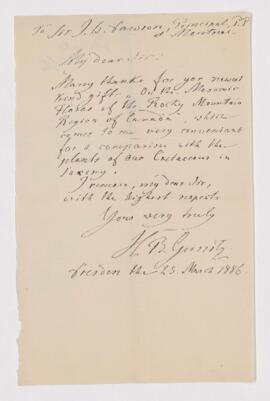 To Sir J. W. Dawson, Principal,
Montreal.
My dear Sir.
Many thanks for yor newest
kind gift „On the Mesozoic
Floras of the Rocky Mountain
Region of Canada", which
comes to me very convenient
for a comparison with the
plants of our Cretaceous in
Saxony.
I remain, my dear Sir,
with the highest respects
Yours very truly
H. B. Geinitz
Dresden the 25. March 1886.